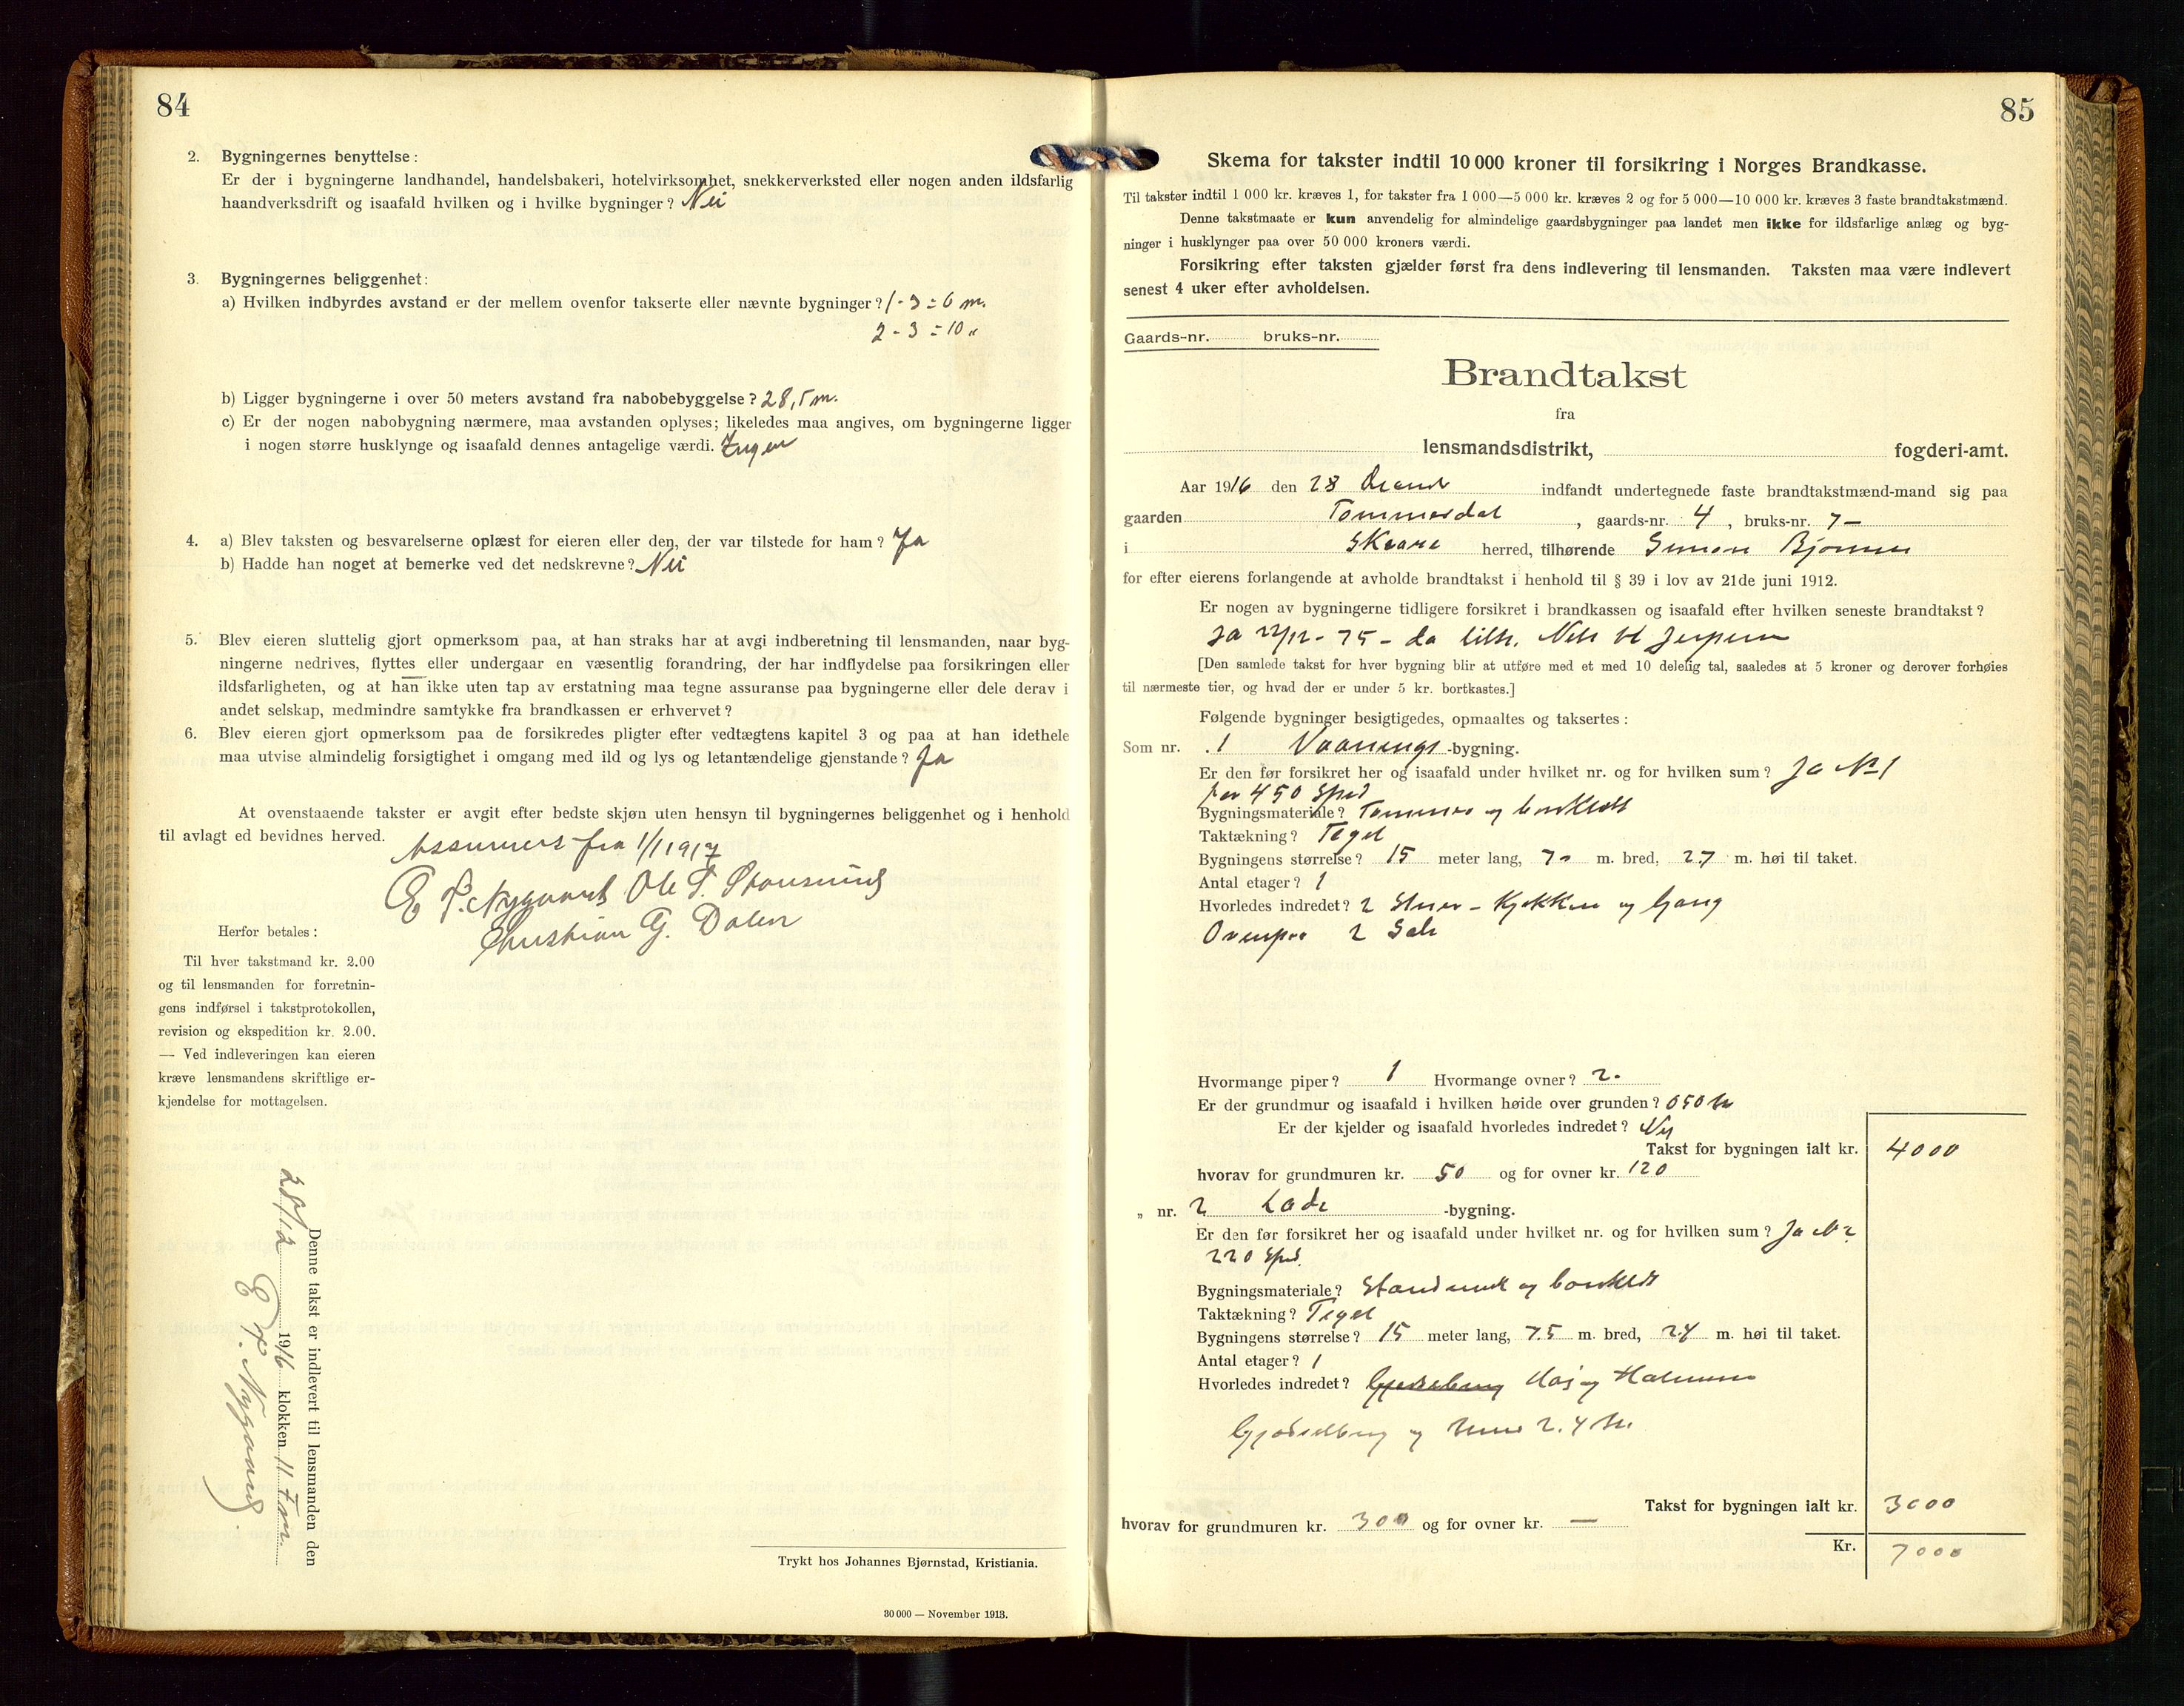 84
2. Bygningernes benyttelse:
Er der i bygningerne landhandel, handelsbakeri, hotelvirksomhet, snekkerverksted eller nogen anden ildsfarlig
haandverksdrift og isaafald hvilken og i hvilke bygninger? Nei
3. Bygningernes beliggenhet:
a) Hvilken indbyrdes avstand er der mellem ovenfor takserte eller nævnte bygninger? 1-3 = 6 m.
2-3 = 10 "
b) Ligger bygningerne i over 50 meters avstand fra nabobebyggelse? 28,5 m.
c) Er der nogen nabobygning nærmere, maa avstanden oplyses; likeledes maa angives, om bygningerne ligger
i nogen større husklynge og isaafald dennes antagelige værdi. Ingen
4. a) Blev taksten og besvarelserne oplæst for eieren eller den, der var tilstede for ham? Ja
b) Hadde han noget at bemerke ved det nedskrevne? Nei
5. Blev eieren sluttelig gjort opmerksom paa, at han straks har at avgi indberetning til lensmanden, naar byg-
ningerne nedrives, flyttes eller undergaar en væsentlig forandring, der har indflydelse paa forsikringen eller
ildsfarligheten, og at han ikke uten tap av erstatning maa tegne assuranse paa bygningerne eller dele derav i
andet selskap, medmindre samtykke fra brandkassen er erhvervet?
6. Blev eieren gjort opmerksom paa de forsikredes pligter efter vedtægtens kapitel 3 og paa at han idethele
maa utvise almindelig forsigtighet i omgang med ild og lys og letantændelige gjenstande? Ja
At ovenstaaende takster er avgit efter bedste skjøn uten hensyn til bygningernes beliggenhet og i henhold
til avlagt ed bevidnes herved.
Assurers fra 1/1 1917
E T. Nygaard Ole T.
Christian G. Dalen
Herfor betales:
Til hver takstmand kr. 2.00
og til lensmanden for forretnin-
gens indførsel i takstprotokollen,
revision og ekspedition kr. 2.00.
— Ved indleveringen kan eieren
kræve lensmandens skriftlige er-
kjendelse for mottagelsen.
Denne takst er indlevert til lensmanden den
28/12 1916 klokken 11 Fm.
E T. Nygaard.
Trykt hos Johannes Bjørnstad, Kristiania.
30 000 — November 1913.
85
Skema for takster indtil 10 000 kroner til forsikring i Norges Brandkasse.
Til takster indtil 1 000 kr. kræves 1, for takster fra 1 000—5 000 kr. kræves 2 og for 5 000—10 000 kr. kræves 3 faste brandtakstmænd.
Denne takstmaate er kun anvendelig for almindelige gaardsbygninger paa landet men ikke for ildsfarlige anlæg og byg-
ninger i husklynger paa over 50 000 kroners værdi.
Forsikring efter taksten gjælder først fra dens indlevering til lensmanden. Taksten maa være indlevert
senest 4 uker efter avholdelsen.
Gaards-nr. bruks-nr.
Brandtakst
fra
lensmandsdistrikt, fogderi-amt.
Aar 1916 den 28 indfandt undertegnede faste brandtakstmænd-mand sig paa
gaarden Tømmerdal, gaards-nr. 4, bruks-nr. 7 —
i Skaare herred, tilhørende Simon
for efter eierens forlangende at avholde brandtakst i henhold til § 39 i lov av 21de juni 1912.
Er nogen av bygningerne tidligere forsikret i brandkassen og isaafald efter hvilken seneste brandtakst?
Ja 22/12 - 75 - da tilh. Nils
[Den samlede takst for hver bygning blir at utføre med et med 10 delelig tal, saaledes at 5 kroner og derover forhøies
til nærmeste tier, og hvad der er under 5 kr. bortkastes.]
Følgende bygninger besigtigedes, opmaaltes og taksertes:
Som nr. 1 Vaanings-bygning.
Er den før forsikret her og isaafald under hvilket nr. og for hvilken sum? Ja No 1
for 450 Spd
Bygningsmateriale? Tømmer og bordklædt
Taktækning? Tegel
Bygningens størrelse? 15 meter lang, 7.0 m. bred, 2.7 m. høi til taket.
Antal etager? 1
Hvorledes indredet? 2 Stuer - Kjøkken og Gang
Ovenpaa 2 Sale
Hvormange piper? 1 Hvormange ovner? 2.
Er der grundmur og isaafald i hvilken høide over grunden? 0.50 m
Er der kjelder og isaafald hvorledes indredet? Nei
Takst for bygningen ialt kr. 4000
hvorav for grundmuren kr. 50 og for ovner kr. 120
" nr. 2 Lade -bygning.
Er den før forsikret her og isaafald under hvilket nr. og for hvilken sum? Ja No 2
220 Spd.
Bygningsmateriale? Standverk og bordklædt
Taktækning? Tegel
Bygningens størrelse? 15 meter lang, 7.5 m. bred, 2.4 m. høi til taket.
Antal etager? 1
Hvorledes indredet? Gjødselbing Høi og Halmrum
Gjødselbing og 2.4 m.
Takst for bygningen ialt kr. 3000
hvorav for grundmuren kr. 300 og for ovner kr. —
Kr. 7000